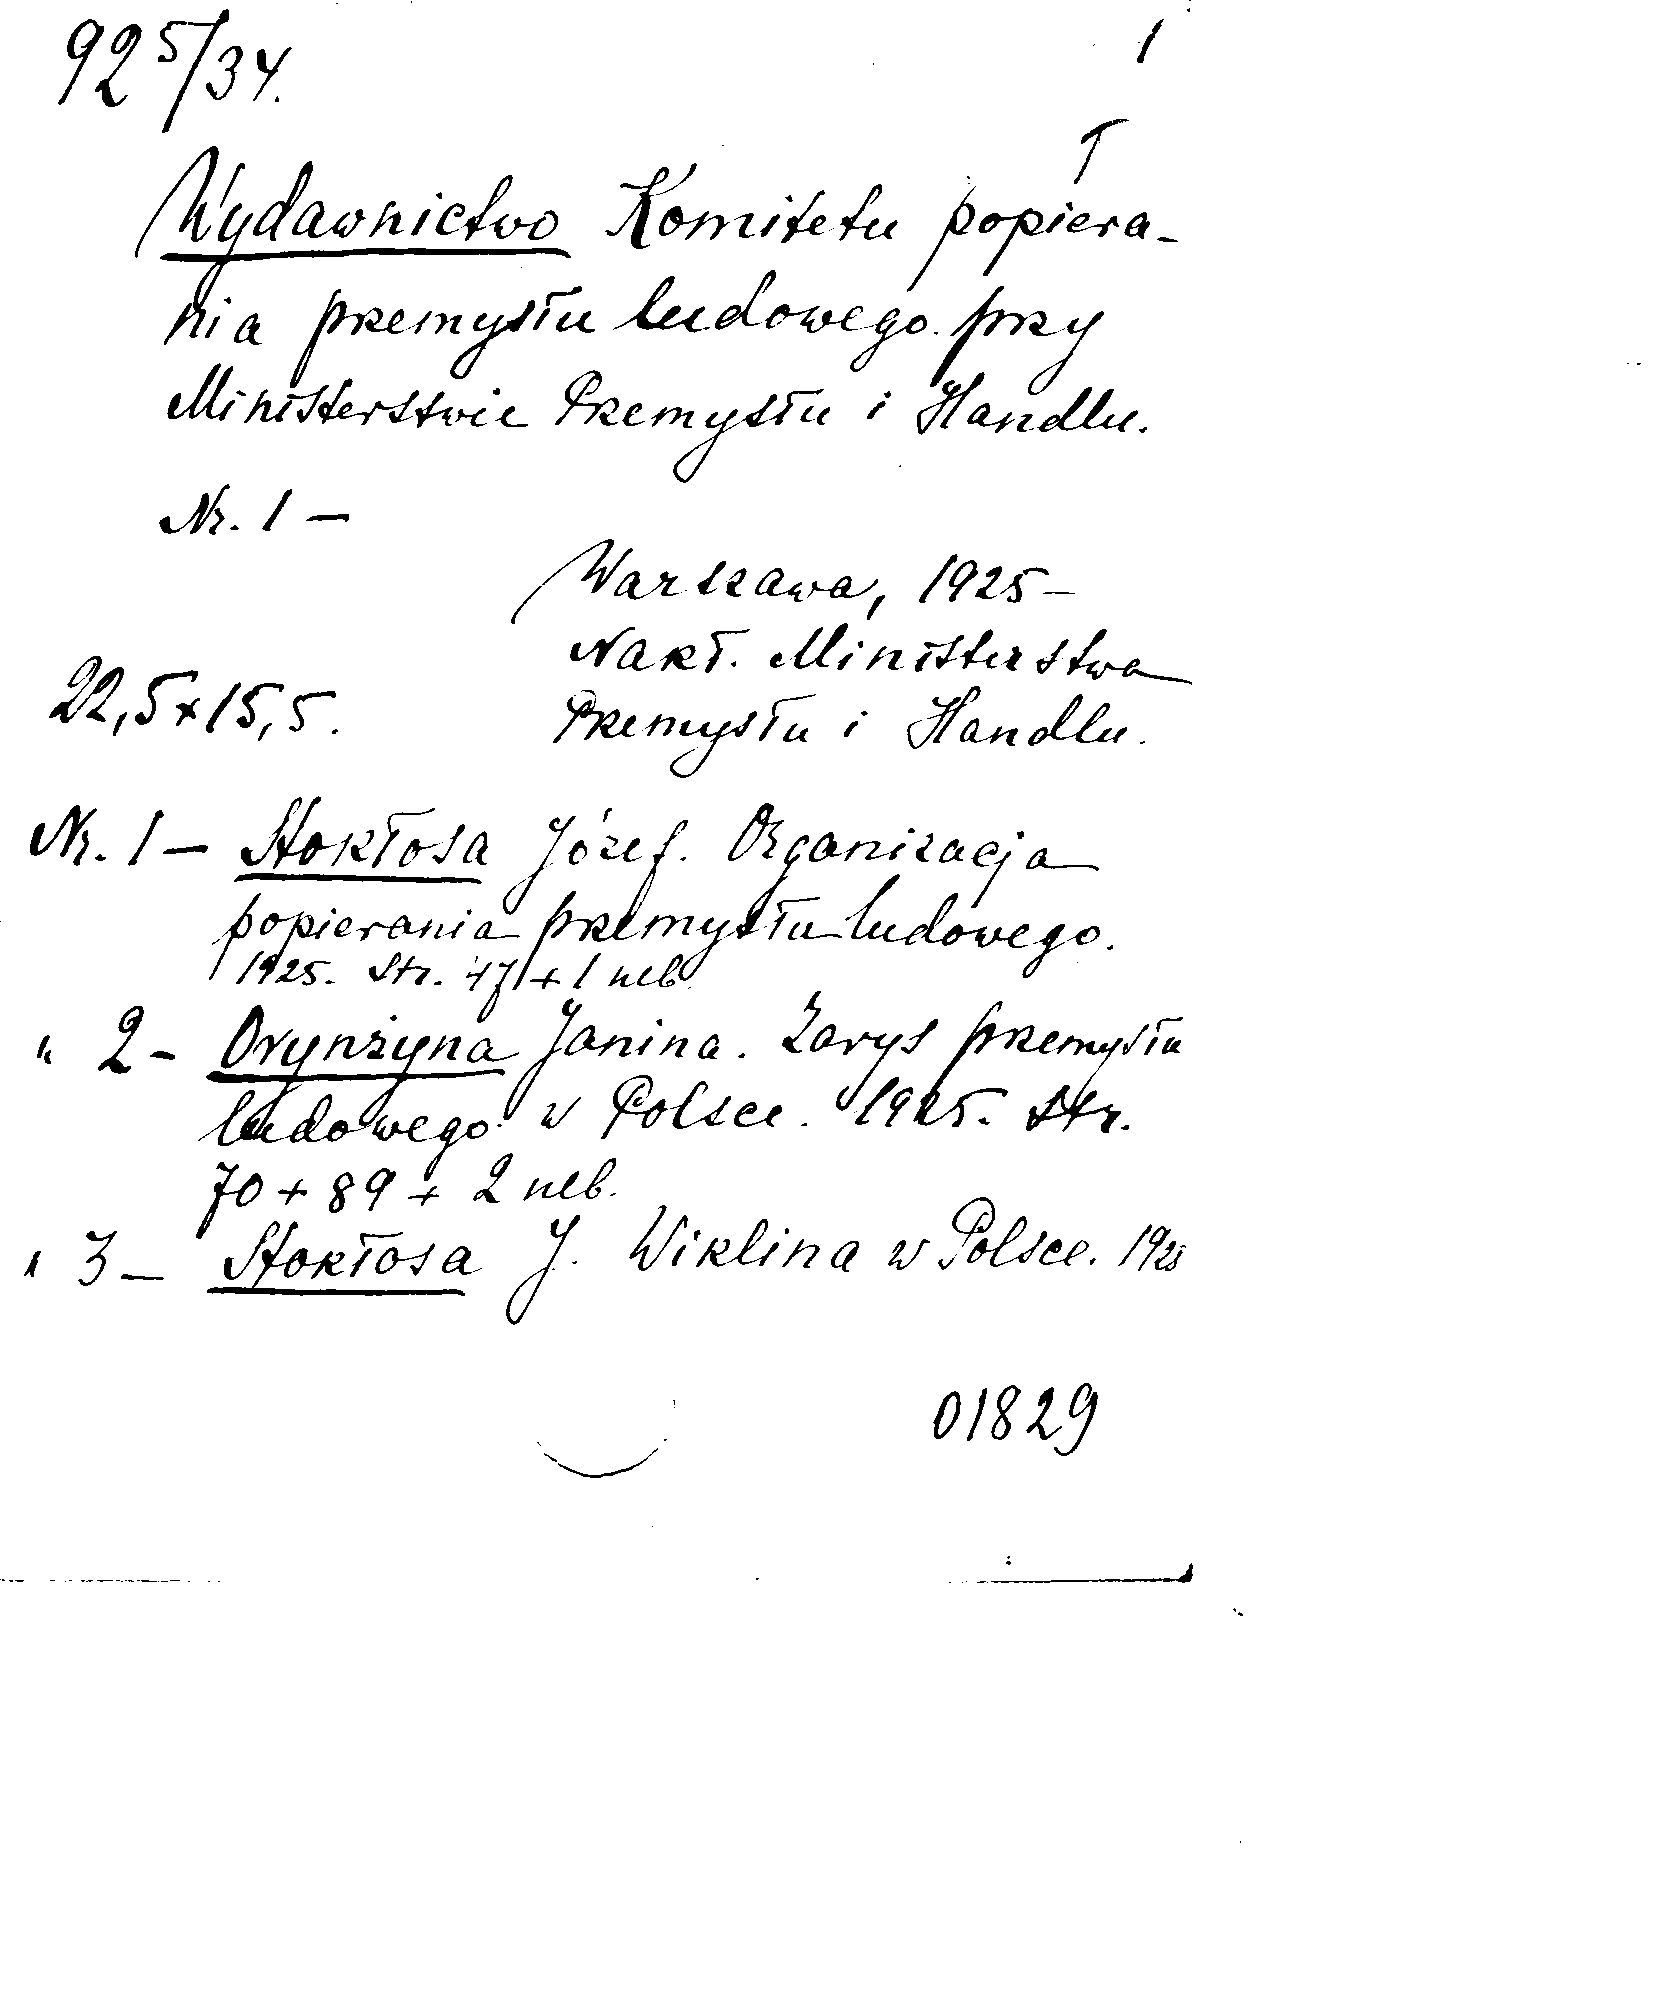 925/34.
1
Wydawnictwo Komitetu popiera-
nia przemysłu ludowego przy
Ministerstwie Przemysłu i Handlu.
Nr. 1 —
Warszawa, 1925 —
Nakł. Ministerstwa
22,5 x 15,5. Przemysłu i Handlu.
Nr. 1 — Stokłosa Józef. Organizacja
popierania przemysłu ludowego.
1925. Str. 47 + 1 nlb.
" 2 — Orynżyna Janina. Zarys przemysłu
ludowego w Polsce. 1925. Str.
70 + 89 + 2 nlb.
" 3 — Stokłosa J. Wiklina w Polsce. 1925
01829